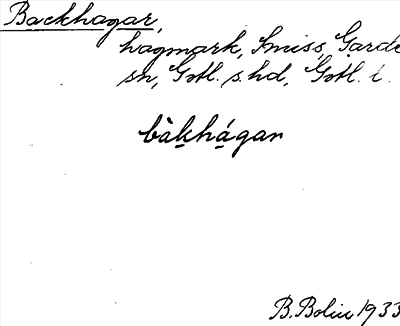 Backhagar,
hagmark, Smiss, Garde
sn, Gotl. s. hd, Gotl. l.
bàkhágar
B. Bolin 1933